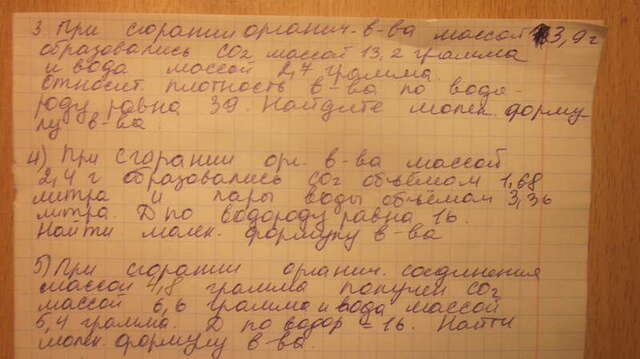 3 При сгорании органич. в-ва массой 3,9 г
образовались CO2 массой 13,2 грамма
и вода массой 2,7 грамма.
Относит. плотность в-ва по водо-
роду равна 39. Найдите молек. форму-
лу в-ва.
4) При сгорании орг. в-ва массой
2,4 г образовались CO2 объёмом 1,68
литра и пары воды объёмом 3,36
литра. D по водороду равна 16.
Найти молек. формулу в-ва
5) При сгорании органич. соединения
массой 4,8 грамма получен CO2
массой 6,6 грамма и вода массой
5,4 грамма. D по водор = 16. Найти
молек. формулу в-ва.